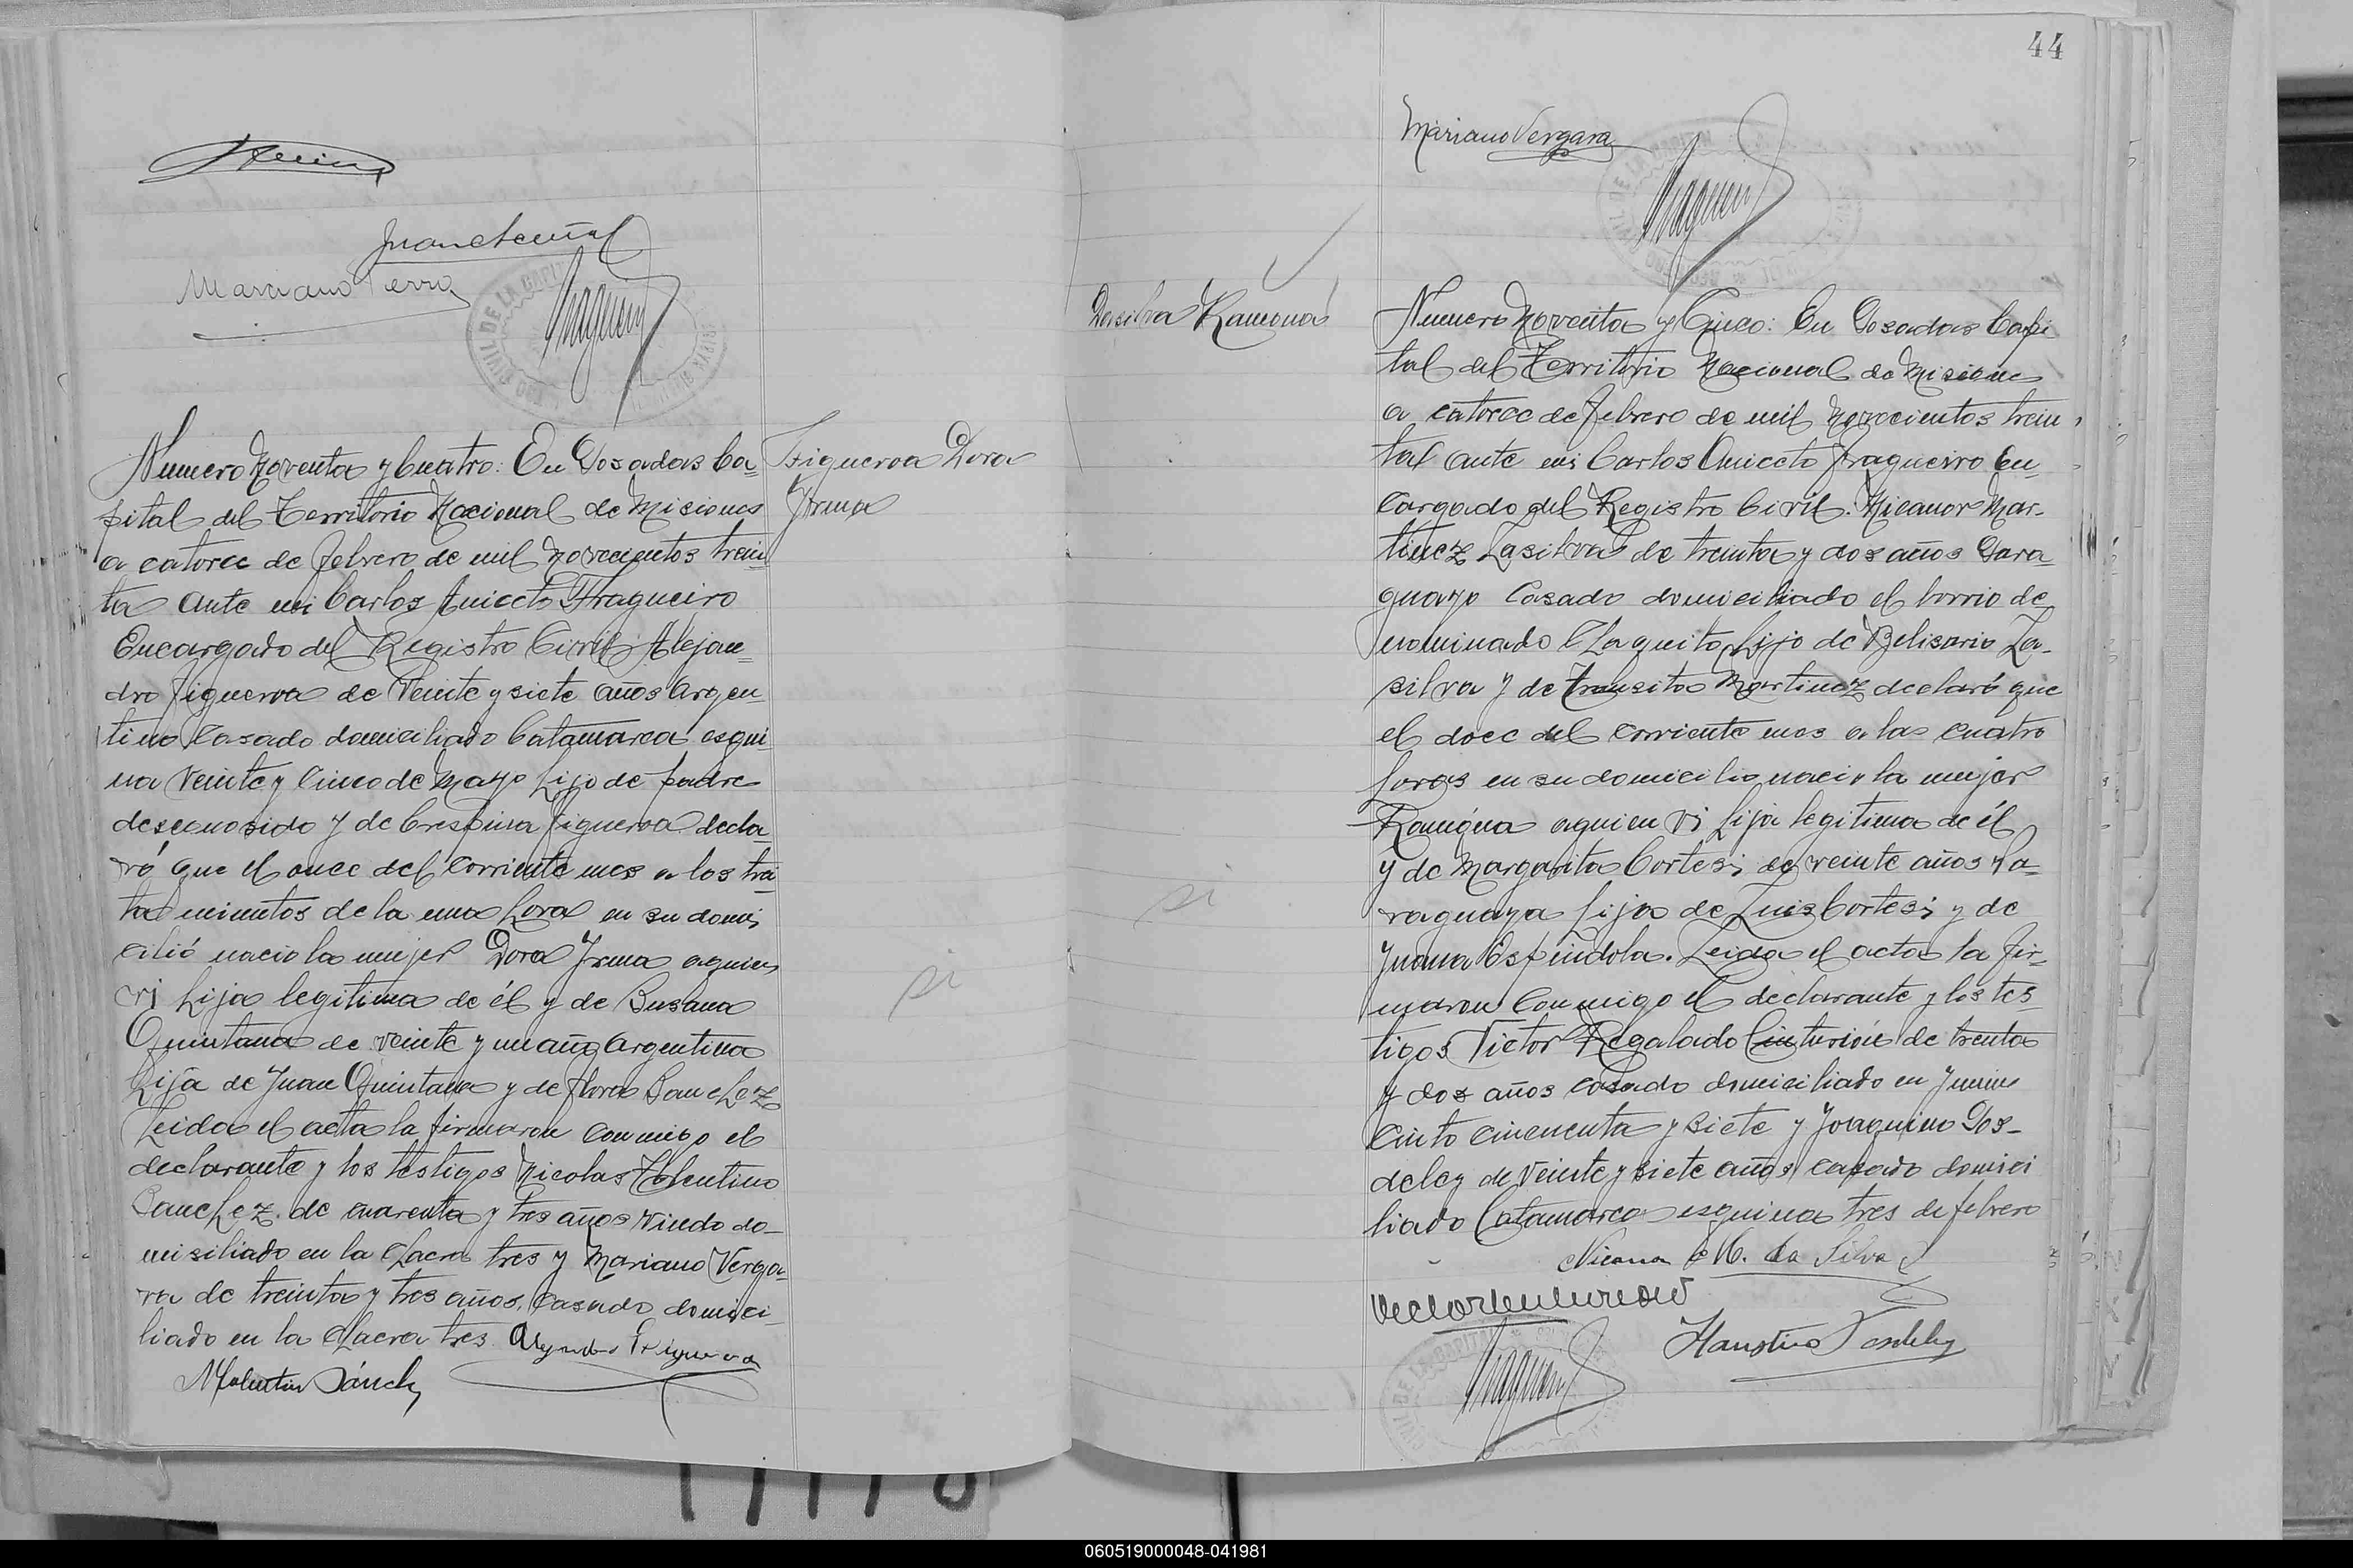 Marciano Terra
Numero Noventa y Cuatro: En Posadas Ca-
pital del Territorio Nacional de Misiones
a catorce de febrero de mil novecientos trein
ta ante mi Carlos Aniceto Fragueiro
Encargado del Registro Civil. Alejan=
dro Figueroa de veinte y siete años argen=
tino casado domiciliado Catamarca esqui
na veinte y cinco de Mayo hijo de padre
desconosido y de Crespina Figueroa decla
ró que el once del corriente mes a los trein
ta minutos de la una hora en su domi
cilió nacio la mujer Dora Irma aquien
vi hija legitima de él y de Susana
Quintana de veinte y un año argentina
hija de Juan Quintana y de Flora Sanchez
Leida el acta la firmaron conmigo el
declarante y los testigos Nicolas Tolentino
Sanchez de cuarenta y tres años viudo do-
misiliado en la chacra tres y Mariano Verga=
ra de treinta y tres años, casado domici
liado en la chacra tres
Figueroa Dora
Irma
si
44
Mariano Vergara
Dasilva Ramona
si
Numero Noventa y Cinco: En Posadas Capi
tal del Territorio Nacional de Misiones
a catorce de febrero de mil novecientos trein
ta ante mi Carlos Aniceto Fragueiro En
cargado del Registro Civil. Nicanor Mar-
tinez Lasilva de treinta y dos años Para=
guayo casado domiciliado el barrio de
nominado Chaquito, hijo de Belisario La-
silva y de Transito Martinez declaró que
el doce del corriente mes a las cuatro
horas en su domicilio nacio la mujer
Ramona aquien vi hija legitima de él
y de Margarita Cortesi de veinte años Pa=
raguaya hija de Luis Cortesi y de
Juana Espindola. Leida el acta la fir=
maron conmigo el declarante y los tes=
tigos Victor Regalado Centurión de trenta
y dos años casado domiciliado en Junin
cinto cincuenta y siete y Joaquino Pos-
deley de veinte y siete años casado domici
liado Catamarca esquina tres de febrero
Nicanor M. da Silva
060519000048-041981